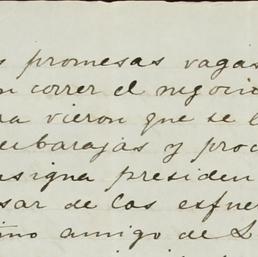 s promesas vagas
n correr el negocio
ra vieron que se l
mbarajas y proc
nsigna presiden
sar de los esfue
timo amigo de L